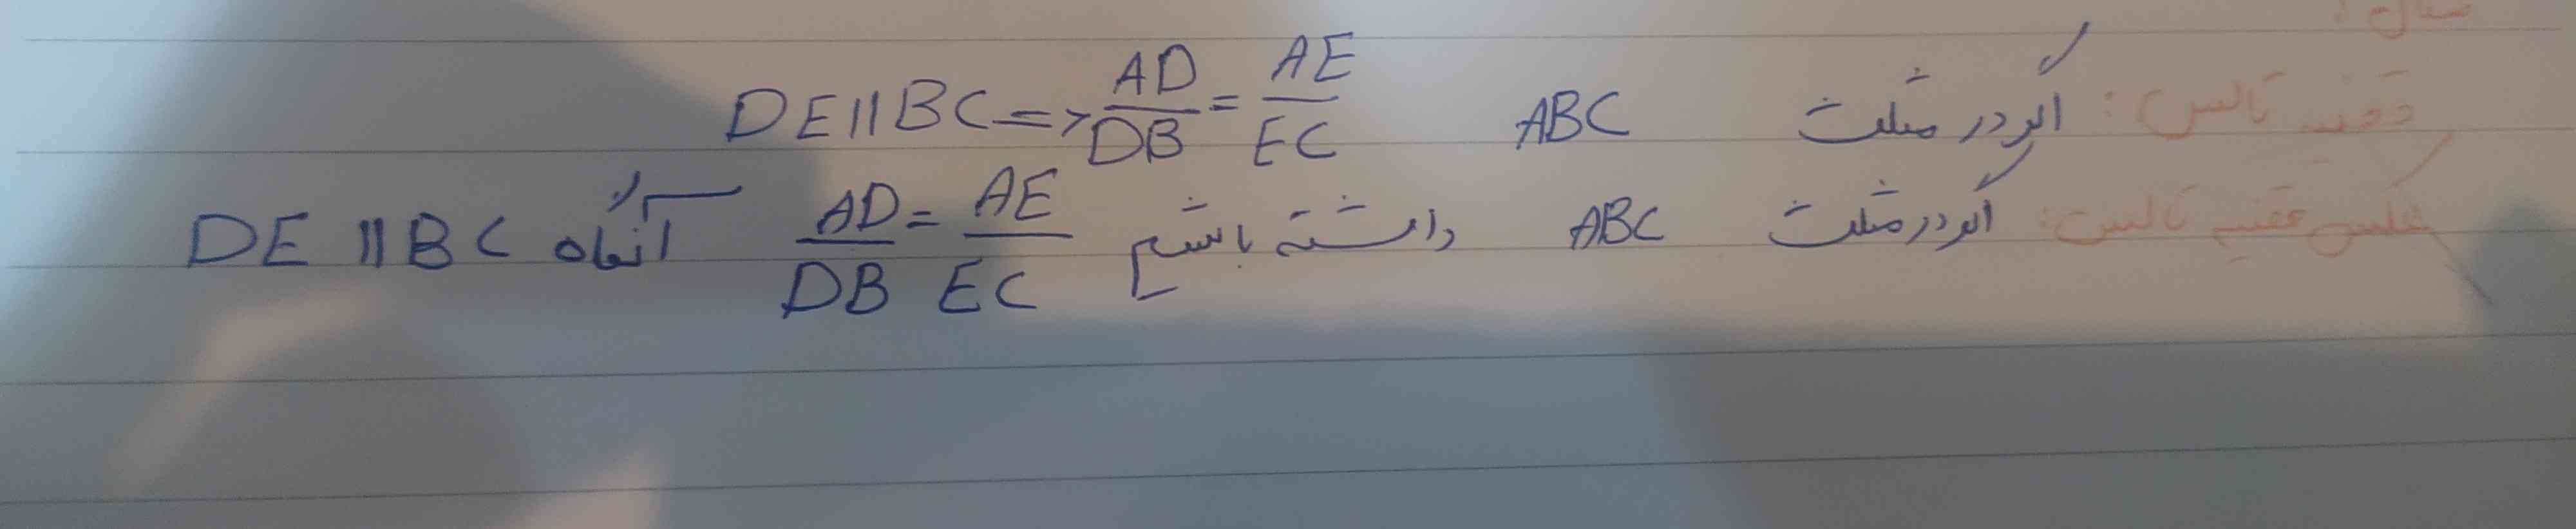 مثال:
قضیه تالس: اگر در مثلث ABC DE || BC => AD/DB = AE/EC
عکس قضیه تالس: اگر در مثلث ABC داشته باشیم AD/DB = AE/EC آنگاه DE || BC